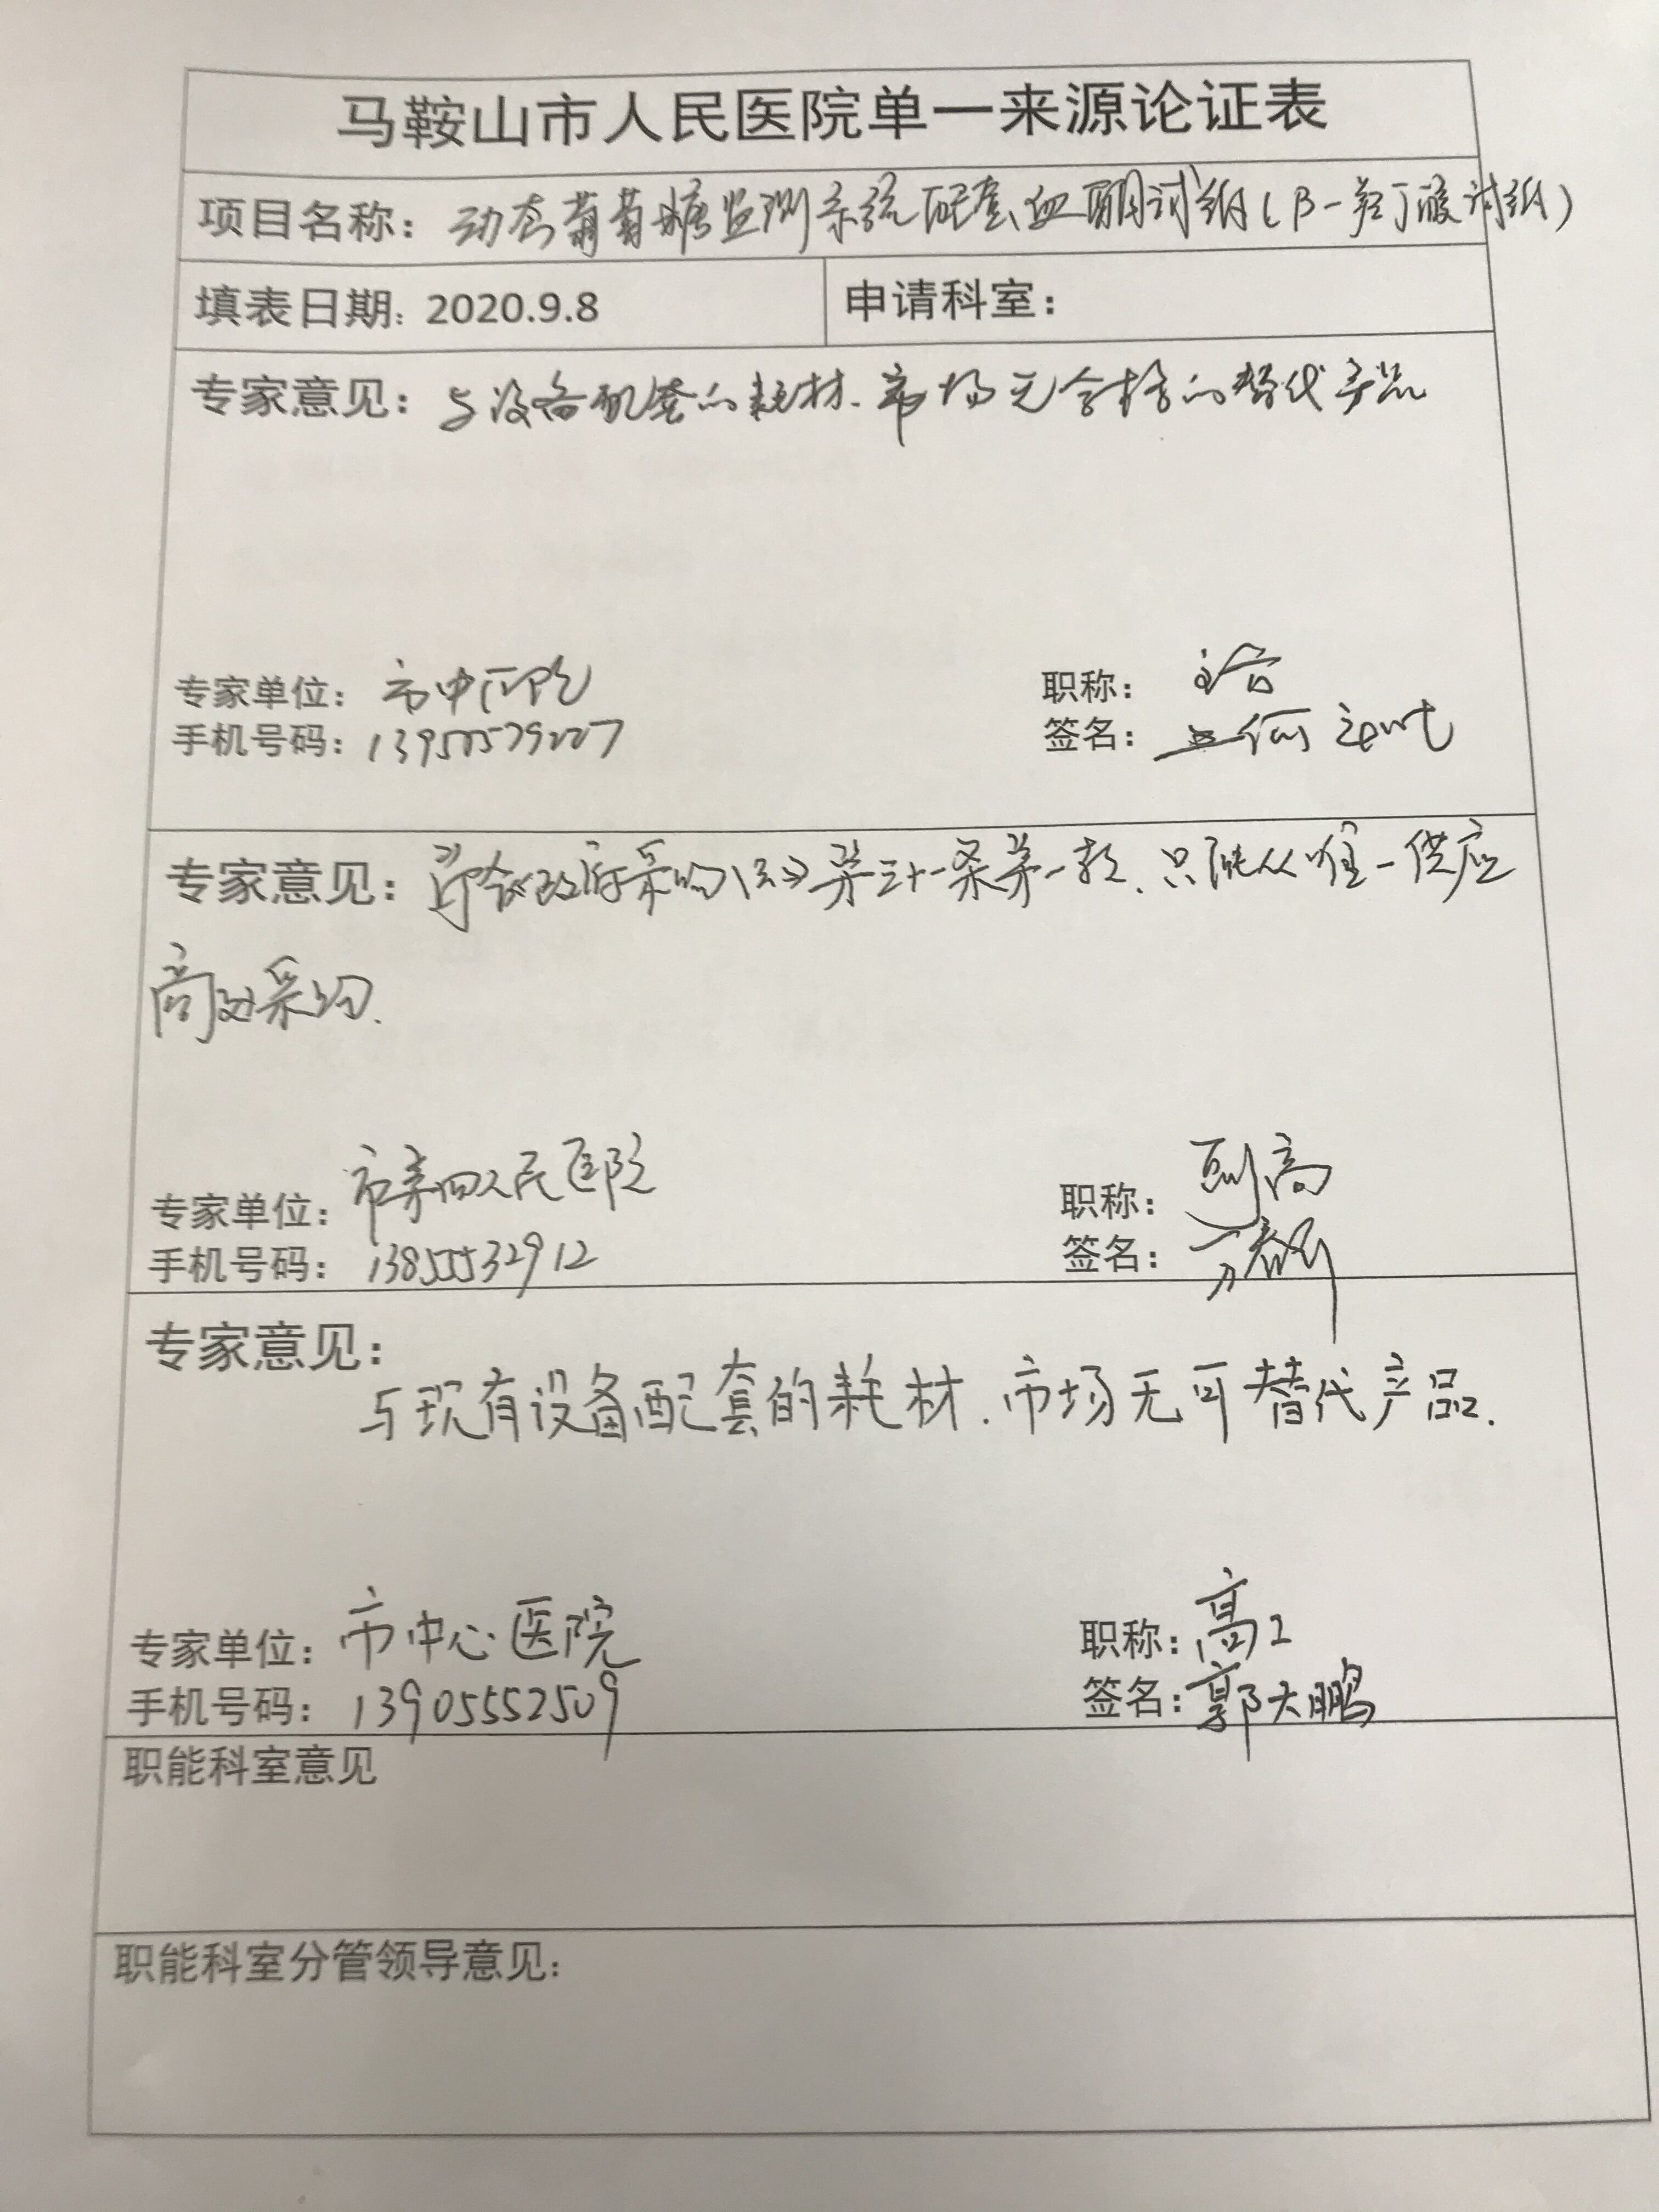 马鞍山市人民医院单一来源论证表
项目名称：动态葡萄糖监测系统配套血酮试纸（β-羟丁酸试纸）
填表日期：2020.9.8 申请科室：
专家意见：与设备配套的耗材.市场无合格的替代产品
专家单位：市中医院 职称：
手机号码： 签名：何
专家意见：符合《政府采购法》第三十一条第一款.只能从唯一供应
商处采购.
专家单位：市第四人民医院 职称：副高
手机号码：13855532912 签名：
专家意见：
与现有设备配套的耗材.市场无可替代产品.
专家单位：市中心医院 职称：高工
手机号码：13905552509 签名：郭大鹏
职能科室意见
职能科室分管领导意见：